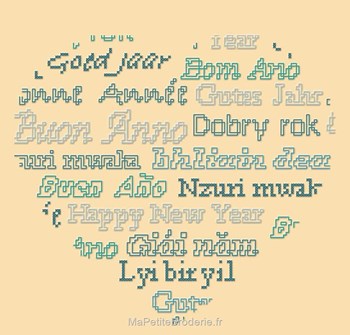 Year
Goed jaar Bom Ano
onne Année Gutes Jahr
Buon Anno Dobry rok
uri mwaka bhliain dea
Buen Año Nzuri mwak
Happy New Year B
no Giái năm
Lyi bir yil
Gut
MaPetiteBroderie.fr